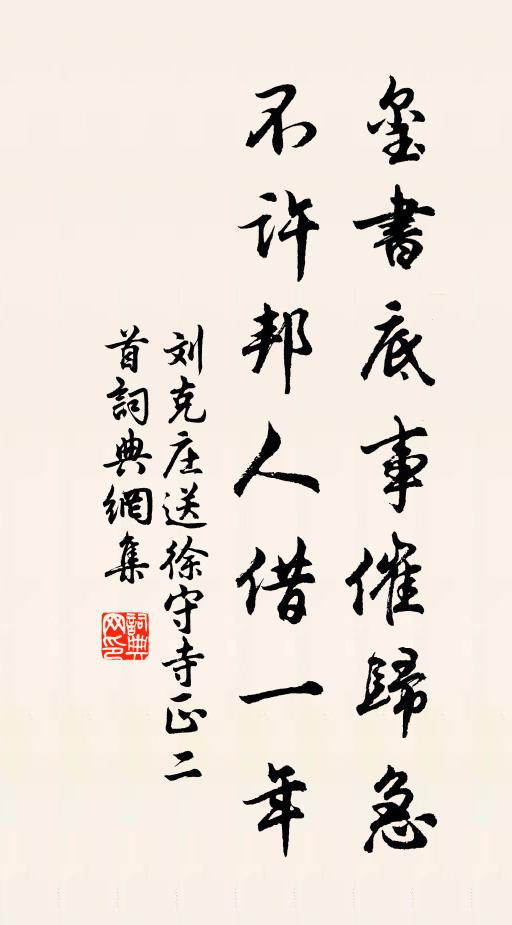 玺書底事催歸急
不許邦人借一年
刘克庄送徐守寺正二
首詞典網集
詞典
网印